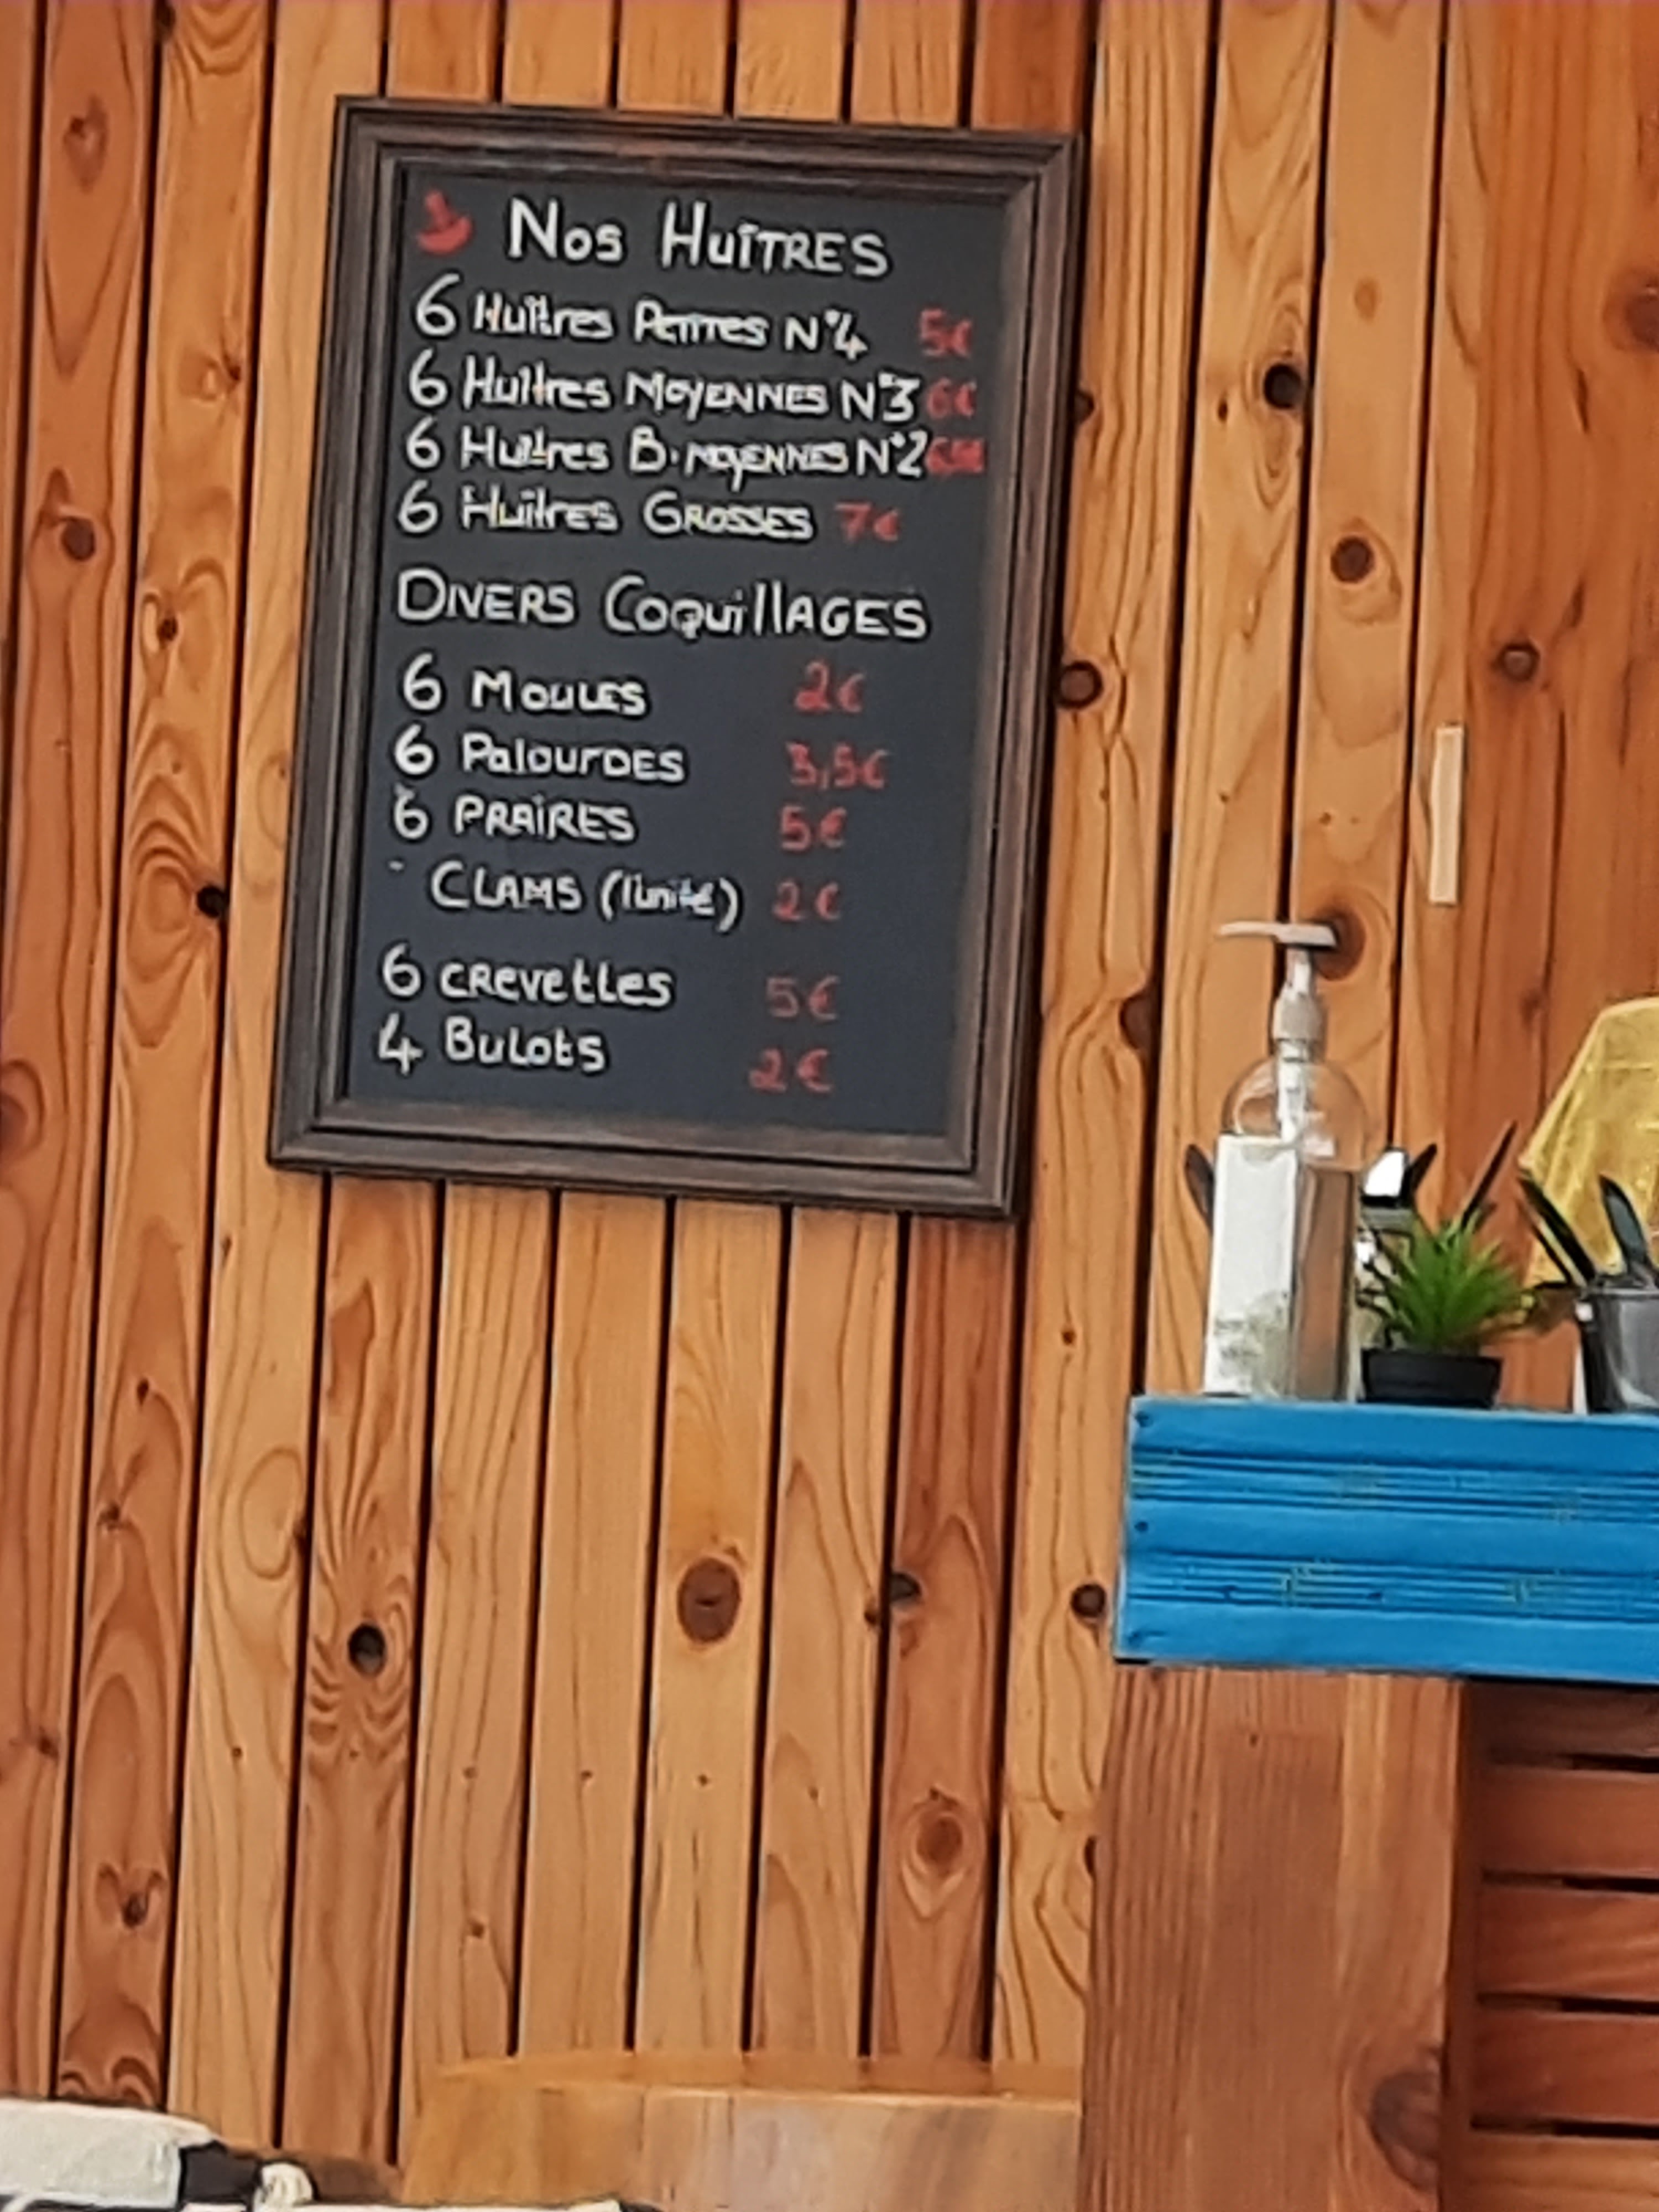 Nos HuîTRES
6 Huîtres PETITES N°4 5€
6 Huîtres MOYENNES N°3 6€
6 Huîtres B.MOYENNES N°2
6 Huîtres GROSSES 7€
DIVERS CoquillAGES
6 MOULES 2€
6 PalourDES 3,5€
6 PRAIRES 5€
CLAMS (l'unité) 2€
6 CRevettes 5€
4 BuLots 2€